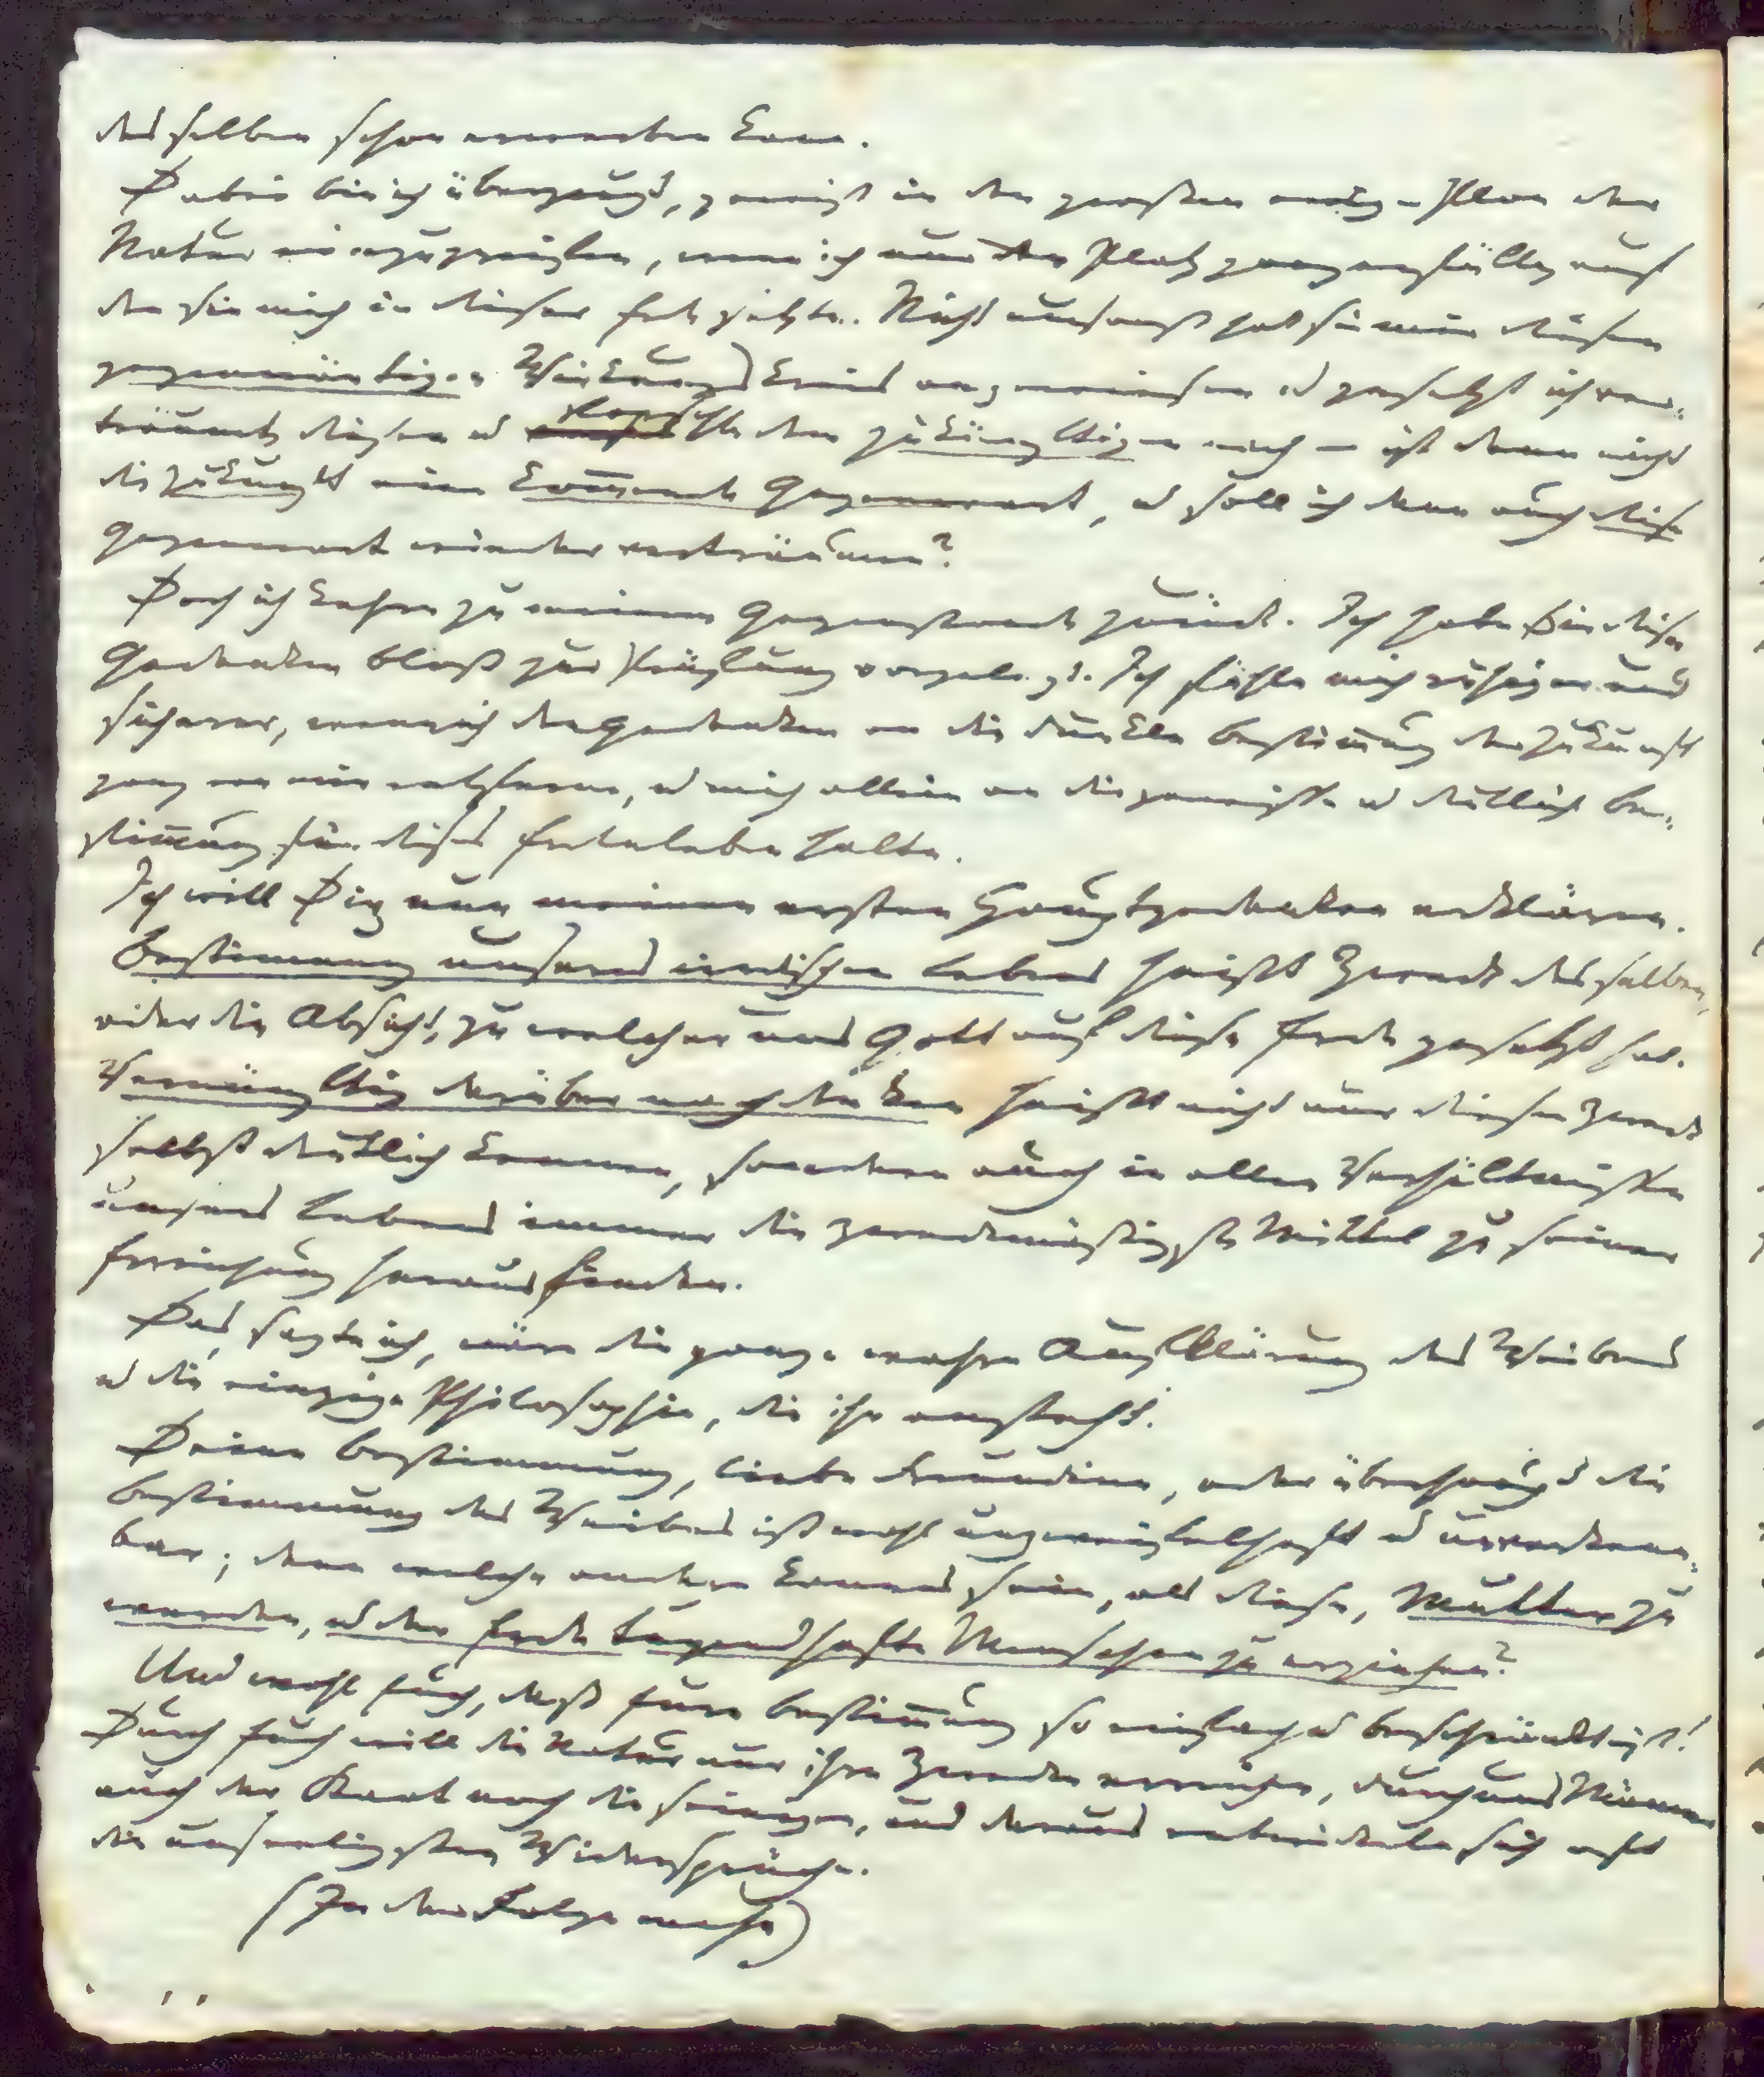 desselben schon erwerben kann.
Dabei bin ich überzeugt, gewiß in den großen ewigen Plan der
Natur einzugreifen, wenn ich nur den Platz ganz erfülle, auf
den sie mich in dieser Erde setzte. Nicht umsonst hat sie mir diesen
gegenwärtigen Wirkungskreis angewiesen u gesetzt ich ver-
träumte diesen u forschte dem zukünftigen nach – ist denn nicht
die Zukunft eine kom̅ende Gegenwart, u soll ich denn auch diese
Gegenwart wieder verträumen?
Doch ich kehre zu meinem Gegenstande zurück. Ich habe Dir diese
Gedanken bloß zur Prüfung vorgelegt. Ich fühle mich ruhiger und
sicherer, wenn ich den Gedanken an die dunkle Bestim̅ung der Zukunft
ganz von mir entferne, u mich allein an die gewisse u deutliche Be-
stim̅ung für dieses Erdenleben halte.
Ich will Dir nun meinen ersten Hauptgedanken erklären.
Bestimmung unseres irdischen Lebens heißt Zweck desselben,
oder die Absicht, zu welcher uns Gott auf diese Erde gesetzt hat.
Vernünftig darüber nachdenken heißt nicht nur diesen Zweck
selbst deutlich kennen, sondern auch in allen Verhältnissen
unseres Lebens immer die zweckmäßigsten Mittel zu seiner
Erreichung herausfinden.
Das, sagte ich, wäre die ganze wahre Aufklärung des Weibes
u die einzige Philosophie, die ihr ansteht.
Deine Bestimmung, liebe Freundinn, oder überhaupt die
Bestimmung des Weibes ist wohl unzweifelhaft u unverkenn-
bar; denn welche andere kann es sein, als diese, Mutter zu
werden, u der Erde tugendhafte Menschen zu erziehen?
Und wohl Euch, daß Eure Bestim̅ung so einfach u beschränkt ist!
Durch Euch will die Natur nur ihre Zwecke erreichen, durch uns Männer
auch der Staat noch die seinigen, und daraus entwickeln sich oft
die unseligsten Widersprüche.
(In der Folge mehr)